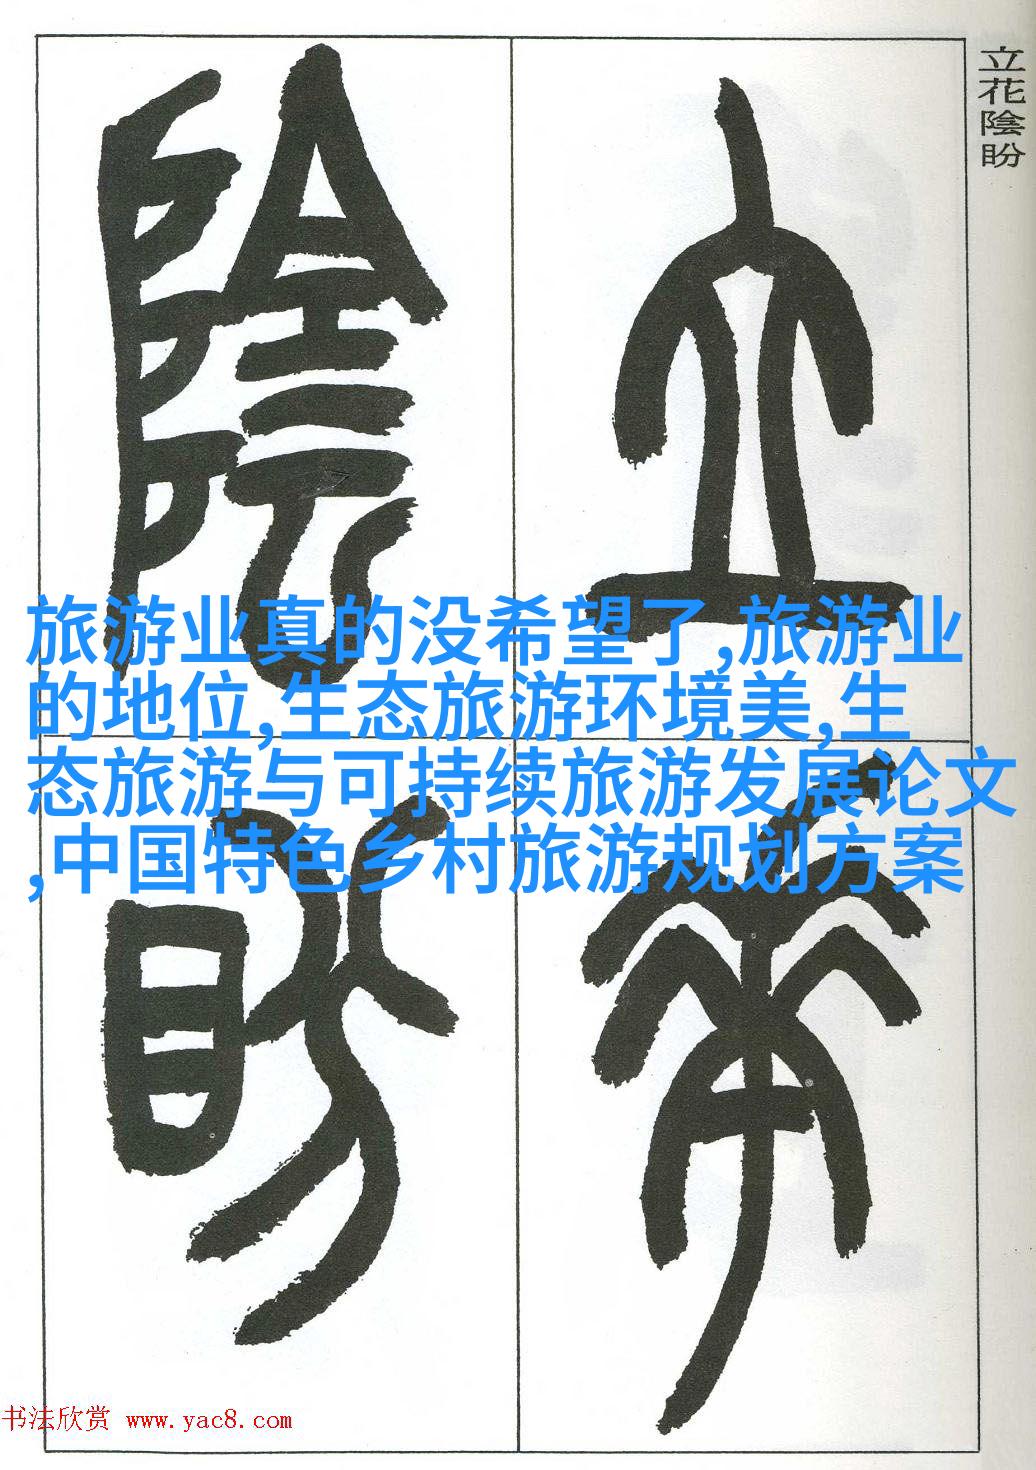 立花陰盼
立花
陰盼
旅游业真的没希望了,旅游业
的地位,生态旅游环境美,生
态旅游与可持续旅游发展论文
,中国特色乡村旅游规划方案
书法欣赏 www.yac8.com